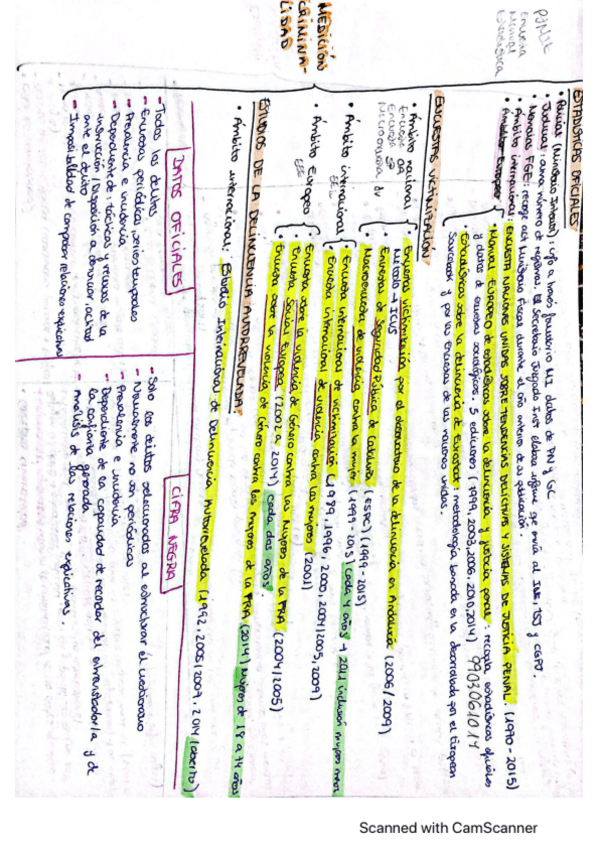 PSNJL
Encuesta
Manual
Estadística
MEDICIÓN
CRIMINA-
LIDAD
ESTADÍSTICAS OFICIALES
• Policías (Ministerio Interior): info a través formulario MI datos de PN y GC
• Judicial: como número de registros. El Secretario Juzgado Inst elabora informe que envía al INE, TSJ y CGPJ.
• Memorias FGE: recoge act Ministerio Fiscal durante el año anterior de su publicación.
• Ámbito internacional: ENCUESTA NACIONES UNIDAS SOBRE TENDENCIAS DELICTIVAS Y SISTEMAS DE JUSTICIA PENAL. (1970-2015)
• Ámbito Europeo
• MANUAL EUROPEO de estadísticas sobre la delincuencia y justicia penal: recopila estadísticas oficiales
y datos de encuestas sociológicas. 5 ediciones (1999, 2003, 2006, 2010, 2014) 9903061014
• Estadísticas sobre la delincuencia de Eurostat: metodología basada en la desarrollada por el European
Sourcebook y por las Encuestas de las naciones unidas.
ENCUESTAS VICTIMIZACIÓN
• Ámbito nacional
Encuesta OA
Encuesta SP
Macroencuesta dv
• Encuesta victimización por el observatorio de la delincuencia en Andalucía (2006/2009)
Método → ICVS
• Encuesta de Seguridad Pública de Cataluña (ESPC) (1999-2015)
• Macroencuesta de violencia contra la mujer (1999-2015) cada 4 años → 2011 inclusión mujeres
• Ámbito internacional
• Encuesta internacional de victimización (1989, 1996, 2000, 2004/2005, 2009)
• Encuesta internacional de violencia contra las mujeres (2001)
• Ámbito Europeo
• Encuesta sobre la violencia de Género contra las Mujeres de la FRA (2004/2005)
• Encuesta Social Europea (2002 a 2014) cada dos años.
• Encuesta sobre la violencia de Género contra las Mujeres de la FRA (2014) Mujeres de 18 a 74 años
ESTUDIOS DE LA DELINCUENCIA AUTORREVELADA:
• Ámbito internacional: Estudio Internacional de Delincuencia Autorrevelada (1992, 2005/2007, 2014 (abierto)
DATOS OFICIALES
- Todos los delitos
- Encuestas periódicas, series temporales
- Prevalencia e incidencia
- Dependiente de: tácticas y recursos de la
institución / Disposición a denunciar actitud
ante el delito
- Imposibilidad de comparar relaciones explicativas
CIFRA NEGRA
- Solo los delitos seleccionados al estructurar el cuestionario
- Normalmente no son periódicas
- Prevalencia e incidencia
- Dependiente de la capacidad de recordar del entrevistador/a y de
la confianza generada
- Análisis de las relaciones explicativas.
Scanned with CamScanner